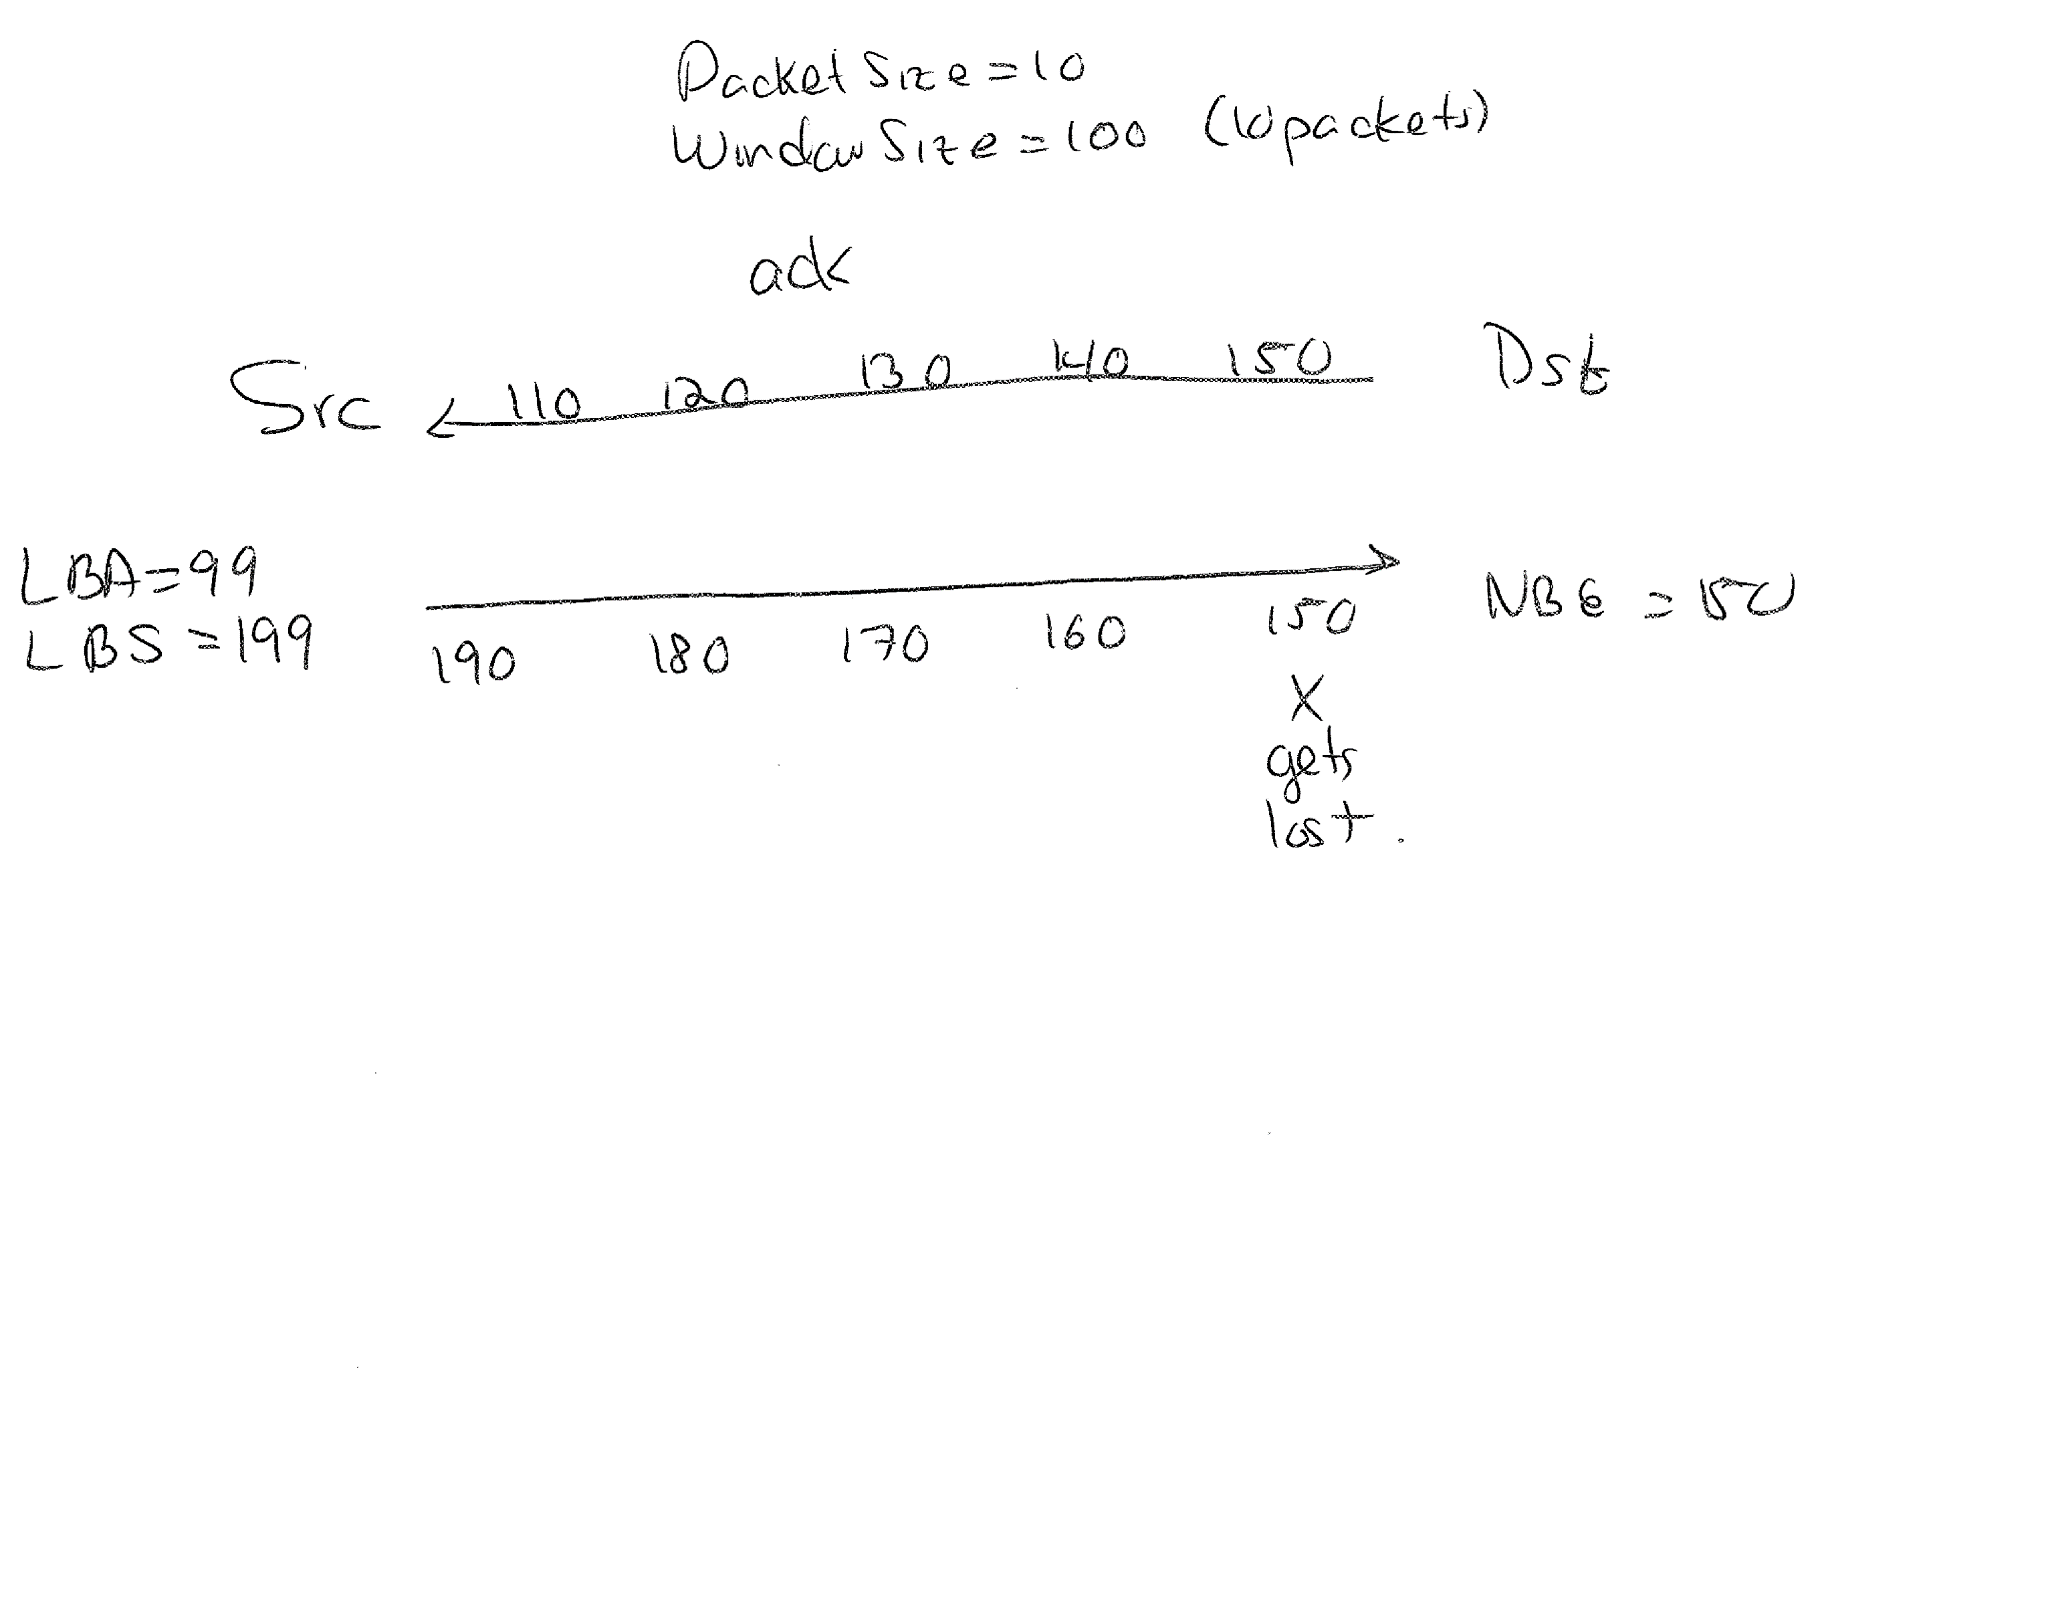 Packet Size = 10
Window Size = 100 (10 packets)
ack
Src 110 120 130 140 150 Dst
LBA = 99
LBS = 199
190 180 170 160 150
NBE = 150
X
gets
lost.